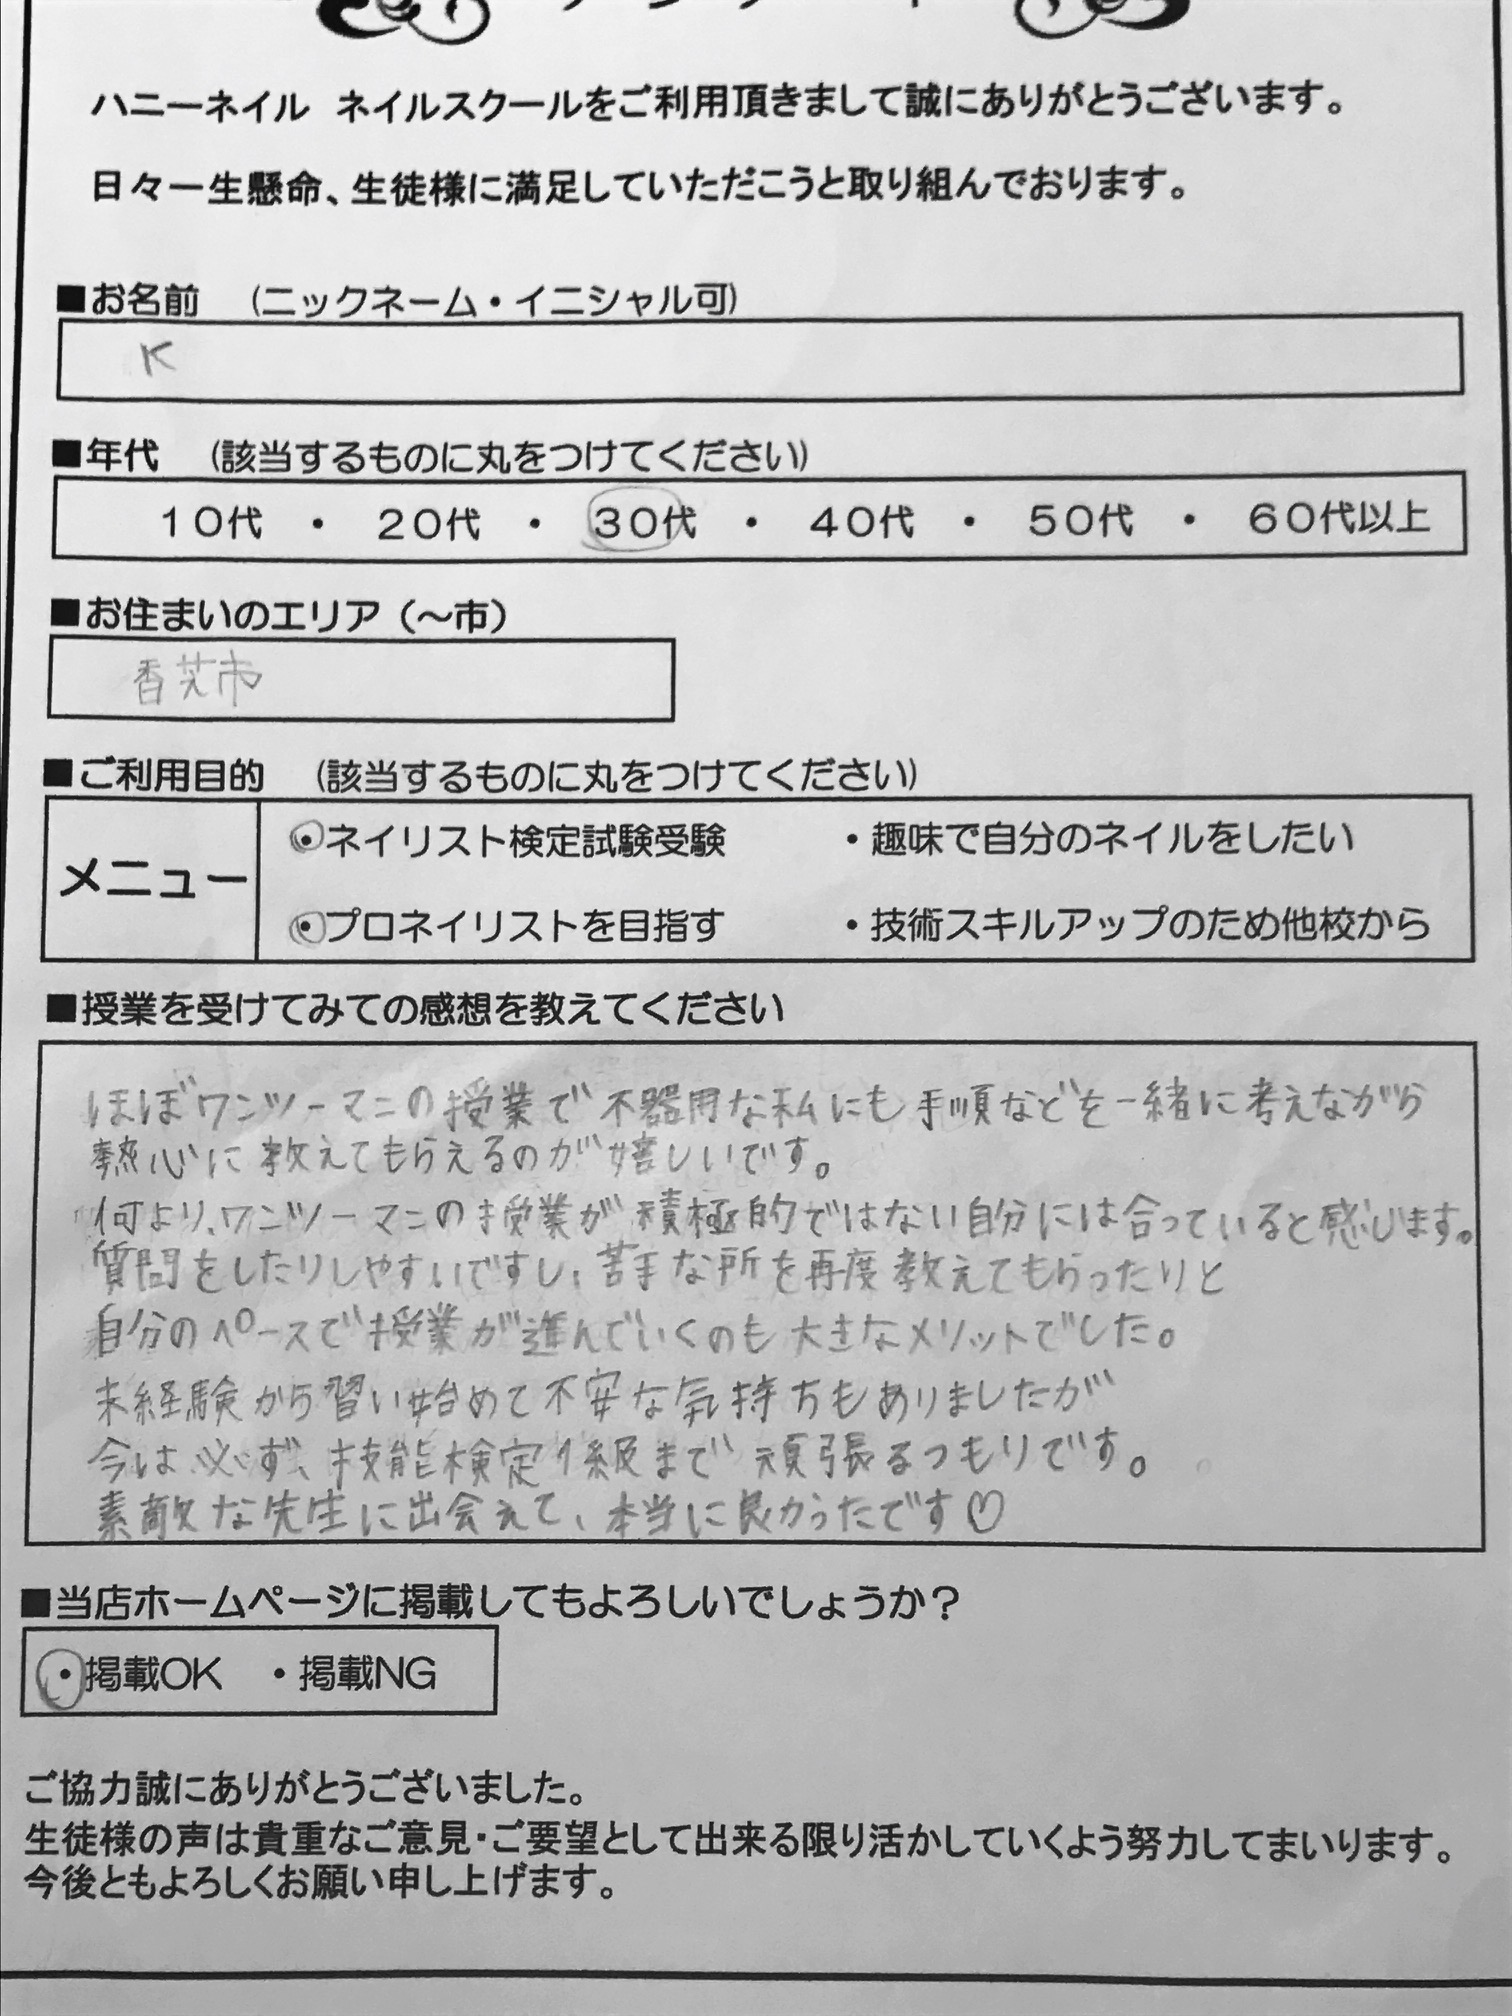 ハニーネイル ネイルスクールをご利用頂きまして誠にありがとうございます。
日々一生懸命、生徒様に満足していただこうと取り組んでおります。
■お名前 (ニックネーム・イニシャル可)
K
■年代 (該当するものに丸をつけてください)
10代 ・ 20代 ・ 30代 ・ 40代 ・ 50代 ・ 60代以上
■お住まいのエリア（～市）
香芝市
■ご利用目的 (該当するものに丸をつけてください)
メニュー
・ネイリスト検定試験受験 ・趣味で自分のネイルをしたい
・プロネイリストを目指す ・技術スキルアップのため他校から
■授業を受けてみての感想を教えてください
ほぼワンツーマンの授業で不器用な私にも手順などを一緒に考えながら
熱心に教えてもらえるのが嬉しいです。
何より、ワンツーマンの授業が積極的ではない自分には合っていると感じます。
質問をしたりしやすいですし、苦手な所を再度教えてもらったりと
自分のペースで授業が進んでいくのも大きなメリットでした。
未経験から習い始めて不安な気持ちもありましたが
今は必ず、技能検定1級まで頑張るつもりです。
素敵な先生に出会えて、本当に良かったです♡
■当店ホームページに掲載してもよろしいでしょうか？
・掲載OK ・掲載NG
ご協力誠にありがとうございました。
生徒様の声は貴重なご意見・ご要望として出来る限り活かしていくよう努力してまいります。
今後ともよろしくお願い申し上げます。